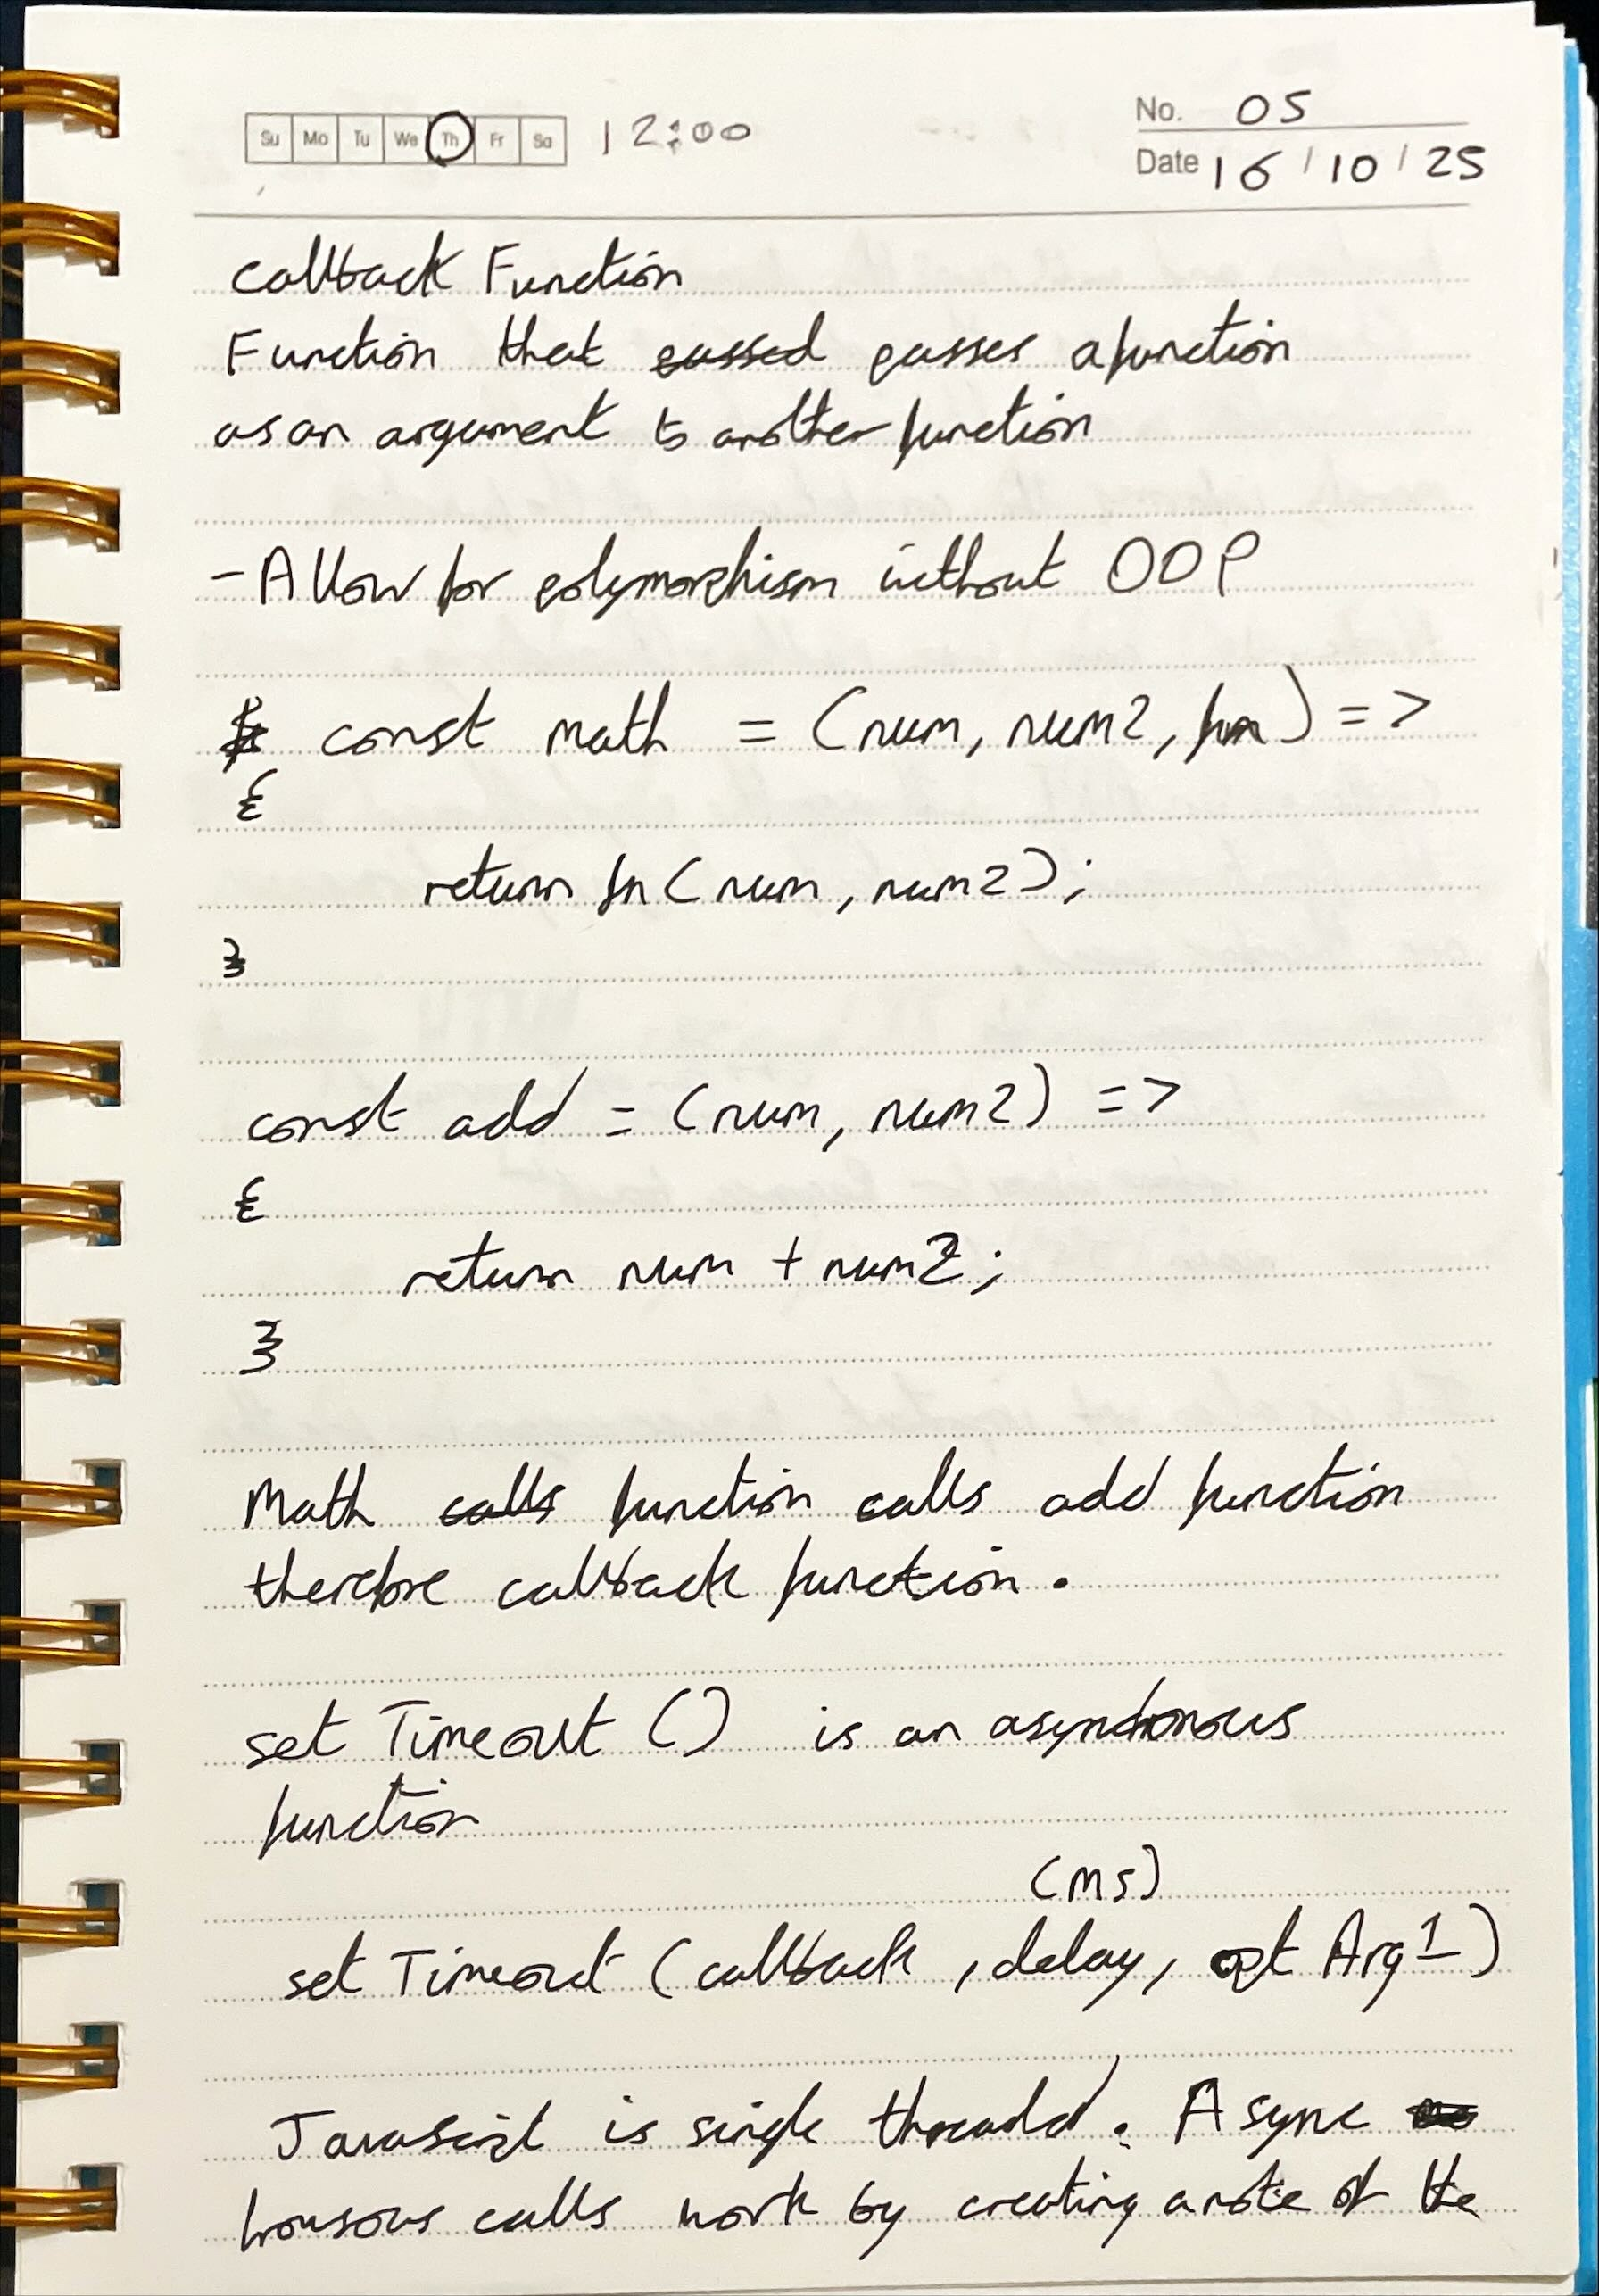 Su Mo Tu We Th Fr Sa 12:00
No. 05
Date 16 / 10 / 25
Callback Function
Function that passed passes a function
as an argument to another function
- Allow for polymorphism without OOP
const math = (num, num2, fn) =>
{
return fn(num, num2);
}
const add = (num, num2) =>
{
return num + num2;
}
Math calls function calls add function
therefore callback function.
set Timeout () is an asynchronous
function
(ms)
set Timeout (callback, delay, opt Arg1)
JavaScript is single threaded. Async
calls work by creating a note of the